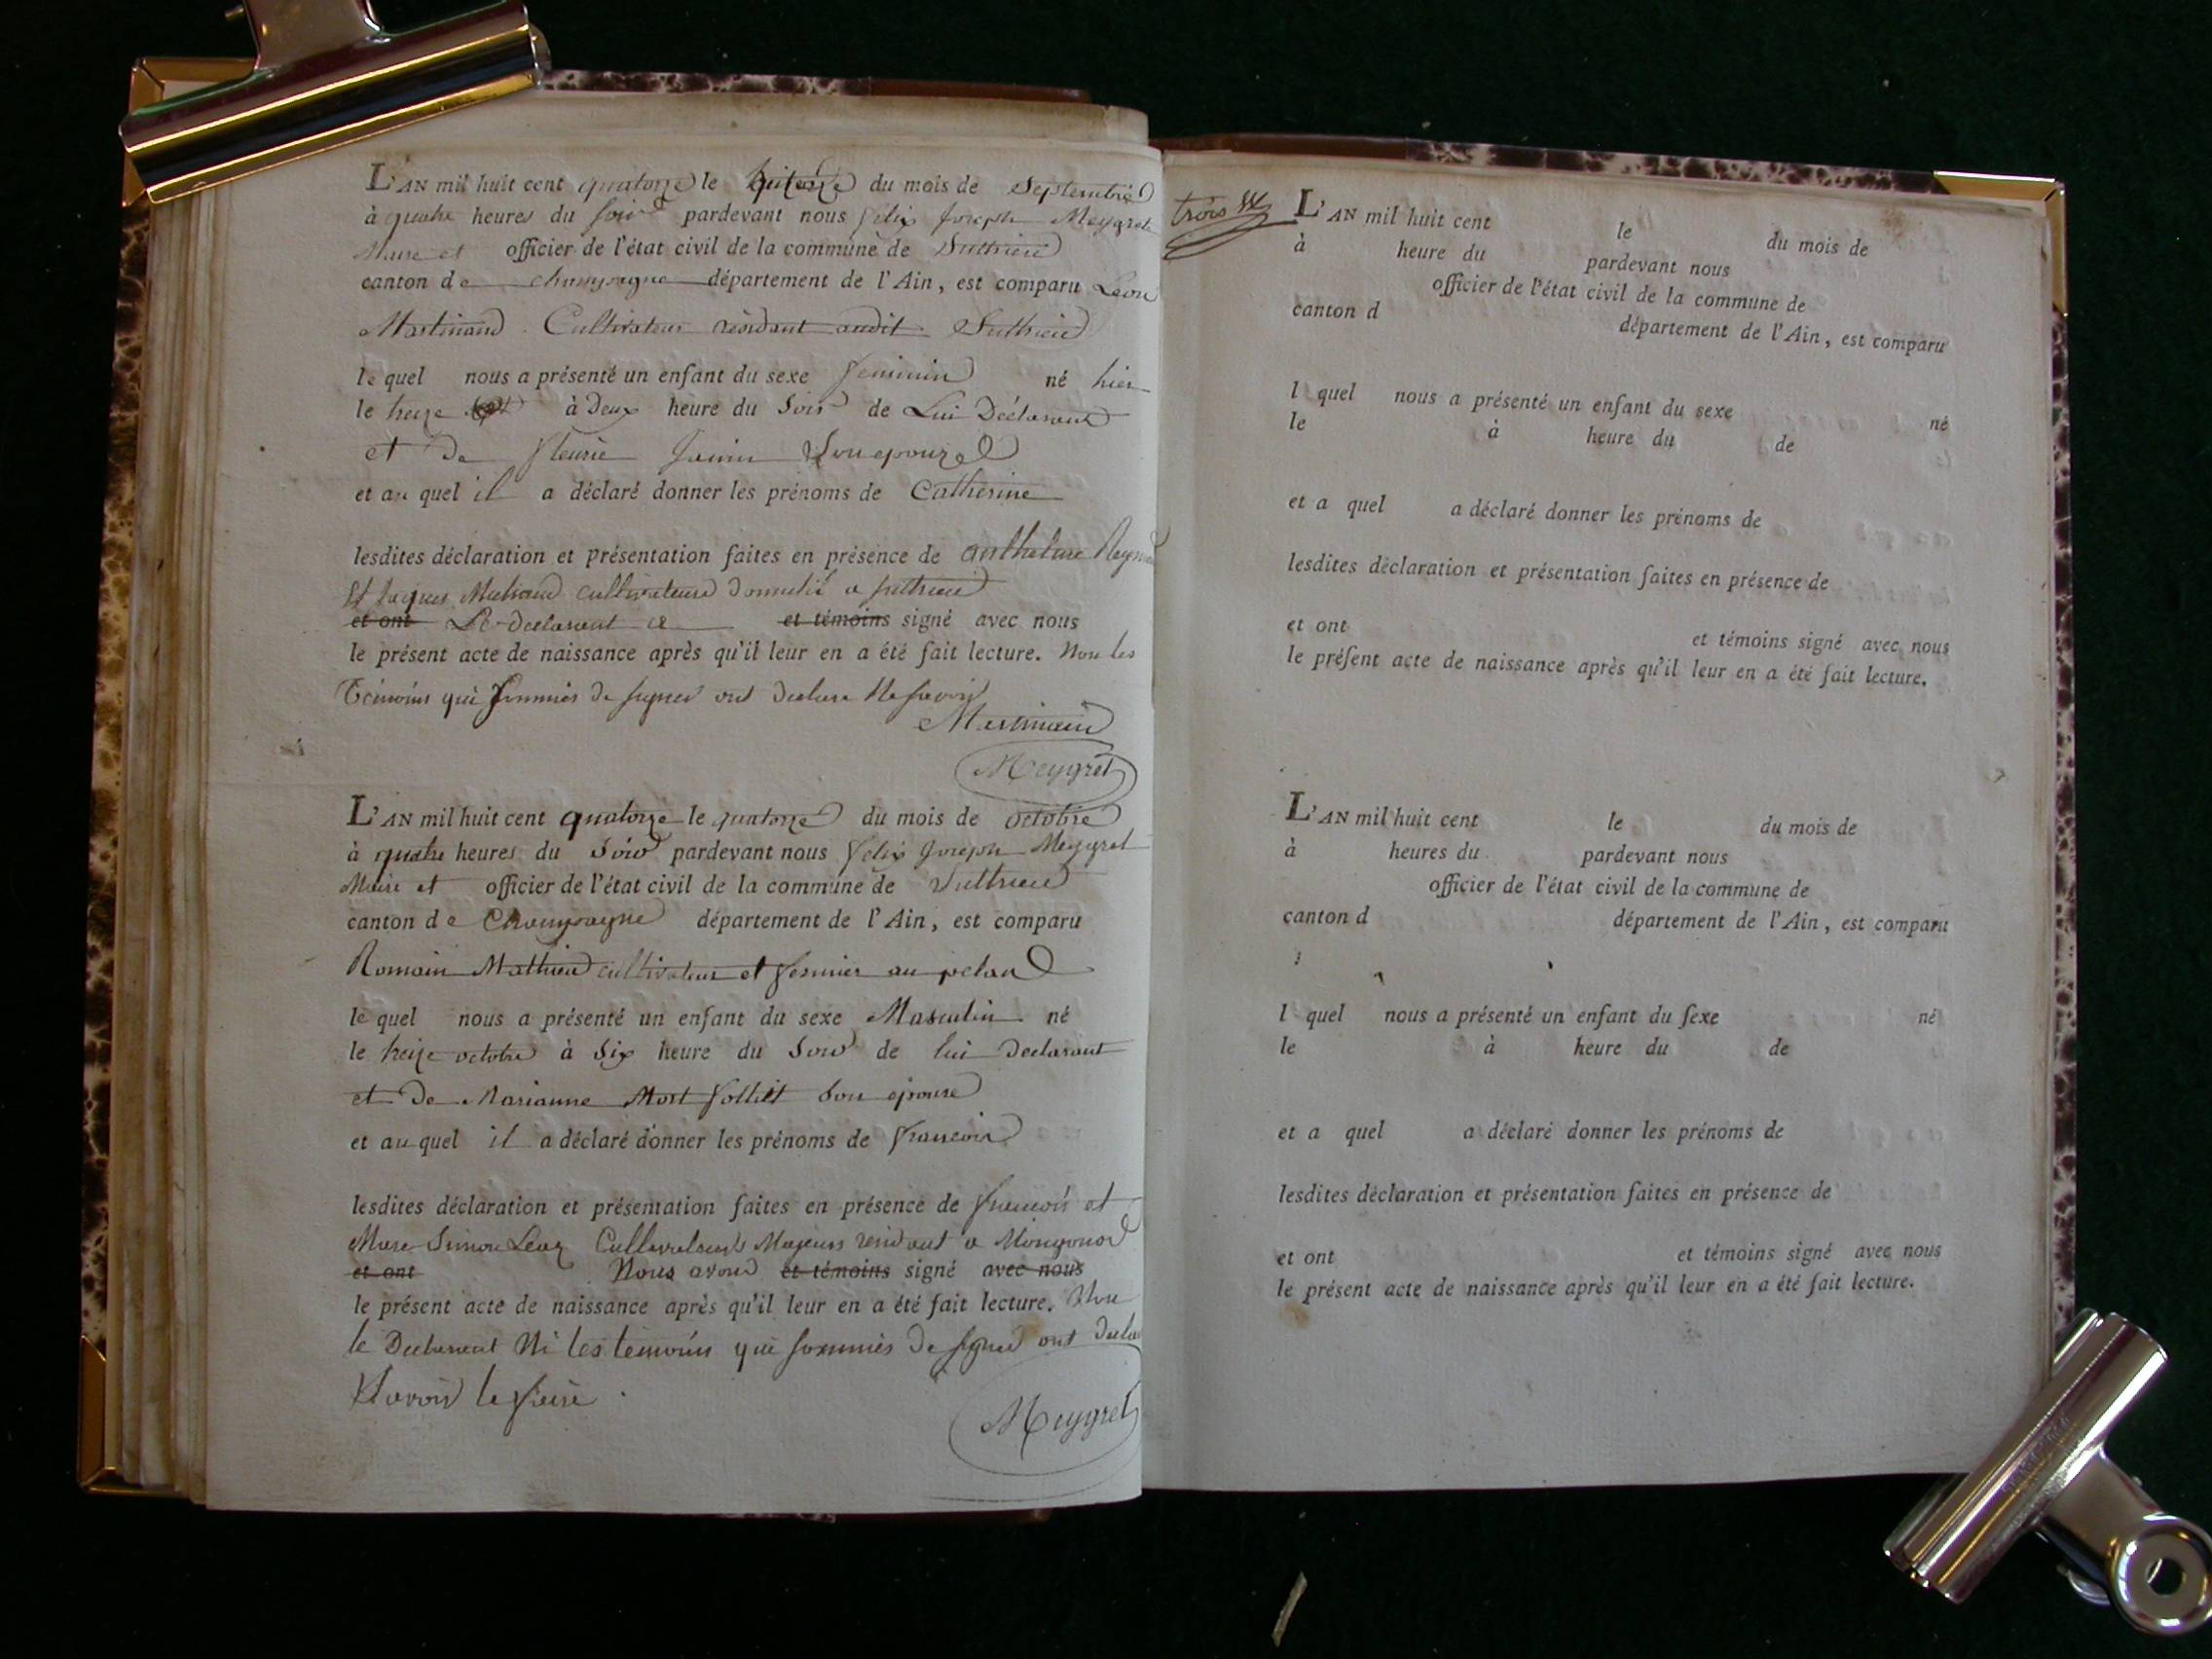 L'AN mil huit cent quatorze le du mois de Septembre
à quatre heures du soir pardevant nous felix Joseph Meygret
Maire et officier de l'état civil de la commune de Suthrieu
canton de champagne département de l'Ain, est comparu Leon
Martinand Cultivateur residant audit Suthrieu
le quel nous a présenté un enfant du sexe feminin né hier
le treize à Deux heure du Soir de Lui Déclarant
et De fleurie Son epouze
et au quel il a déclaré donner les prénoms de Catherine
lesdites déclaration et présentation faites en présence de anthelme
Et Jaques cultivateurs a Suthrieu
et ont Le declarant et témoins signé avec nous
le présent acte de naissance après qu'il leur en a été fait lecture. Non les
Témoins qui Sommés de signer ont declaré Ne savoir
Martinand
Meygret
L'AN mil huit cent quatorze le quatorze du mois de octobre
à quatre heures du Soir pardevant nous felix Joseph Meygret
Maire et officier de l'état civil de la commune de Suthrieu
canton de Champagne département de l'Ain, est comparu
Romain Mathieu cultivateur et fermier au
le quel nous a présenté un enfant du sexe Masculin né
le treize octobre à Six heure du Soir de lui Declarant
et De Marianne Mort follict Son epouse
et au quel il a déclaré donner les prénoms de francois
lesdites déclaration et présentation faites en présence de francois et
Simon Cultivateurs Majeurs a
et ont Nous avons et témoins signé avec nous
le présent acte de naissance après qu'il leur en a été fait lecture. Non
le Declarant Ni les temoins qui sommés De signer ont
Savoir le faire.
Meygret
trois
L'AN mil huit cent le du mois de
à heure du pardevant nous
officier de l'état civil de la commune de
canton d département de l'Ain, est comparu
l quel nous a présenté un enfant du sexe né
le à heure du de
et a quel a déclaré donner les prénoms de
lesdites déclaration et présentation faites en présence de
et ont et témoins signé avec nous
le préſent acte de naissance après qu'il leur en a été fait lecture.
L'AN mil huit cent le du mois de
à heures du pardevant nous
officier de l'état civil de la commune de
canton d département de l'Ain, est comparu
l quel nous a présenté un enfant du ſexe né
le à heure du de
et a quel a déclaré donner les prénoms de
lesdites déclaration et présentation faites en présence de
et ont et témoins signé avec nous
le présent acte de naissance après qu'il leur en a été fait lecture.